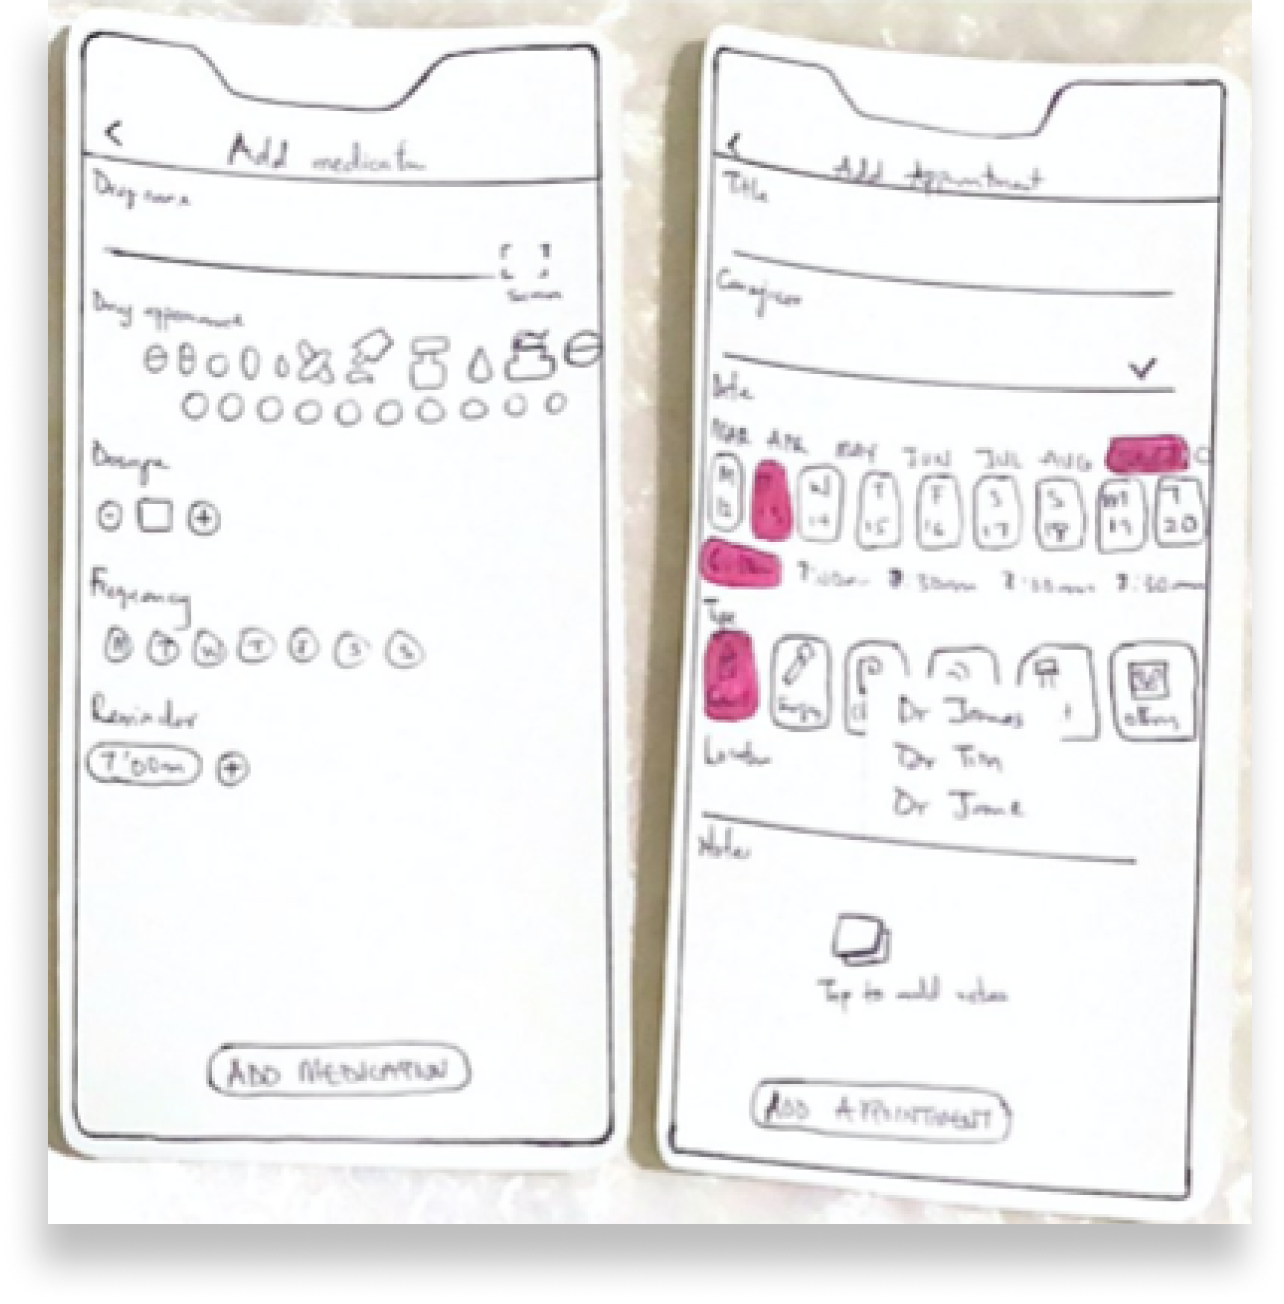 <
Add
Drug name
Drug appearance
Dosage
- +
Frequency
M T W T F S S
Reminder
7:00am +
ADD MEDICATION
<
Add Appointment
Title
Caregiver
Date
MAR APR MAY JUN JUL AUG
M T W T F S S M T
12 13 14 15 16 17 18 19 20
7:00am 7:30am 8:00am 8:30am
Type
others
Dr James
Dr Tim
Dr Jane
Location
Notes
Tap to add notes
ADD APPOINTMENT